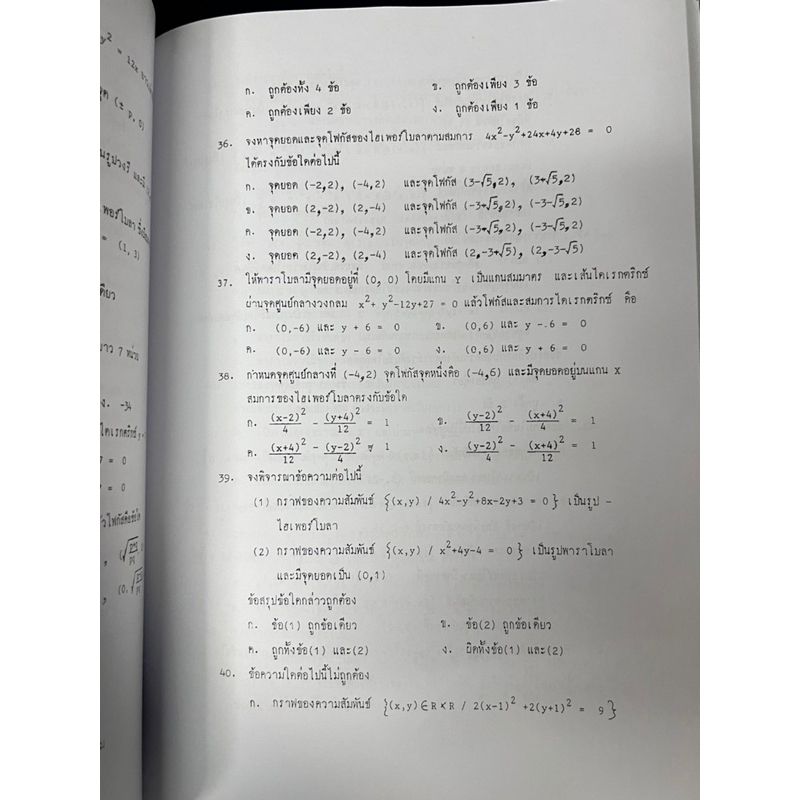 y² = 12x
จุด (± P, 0)
นรูปวงรี และมี
= (1, 3)
ดียว
าว 7 หน่วย
ง. -34
7 = 0
7 = 0
ก. ถูกต้องทั้ง 4 ข้อ ข. ถูกต้องเพียง 3 ข้อ
ค. ถูกต้องเพียง 2 ข้อ ง. ถูกต้องเพียง 1 ข้อ
36. จงหาจุดยอดและจุดโฟกัสของไฮเพอร์โบลาตามสมการ 4x²-y²+24x+4y+28 = 0
ได้ตรงกับข้อใดต่อไปนี้
ก. จุดยอด (-2,2), (-4,2) และจุดโฟกัส (3-√5,2), (3+√5,2)
ข. จุดยอด (2,-2), (2,-4) และจุดโฟกัส (-3+√5,2), (-3-√5,2)
ค. จุดยอด (-2,2), (-4,2) และจุดโฟกัส (-3+√5,2), (-3-√5,2)
ง. จุดยอด (2,-2), (2,-4) และจุดโฟกัส (2,-3+√5), (2,-3-√5)
37. ให้พาราโบลามีจุดยอดอยู่ที่ (0, 0) โดยมีแกน Y เป็นแกนสมมาตร และเส้นไดเรกตริกซ์
ผ่านจุดศูนย์กลางวงกลม x²+ y²-12y+27 = 0 แล้วโฟกัสและสมการไดเรกตริกซ์ คือ
ก. (0,-6) และ y + 6 = 0 ข. (0,6) และ y -.6 = 0
ค. (0,-6) และ y - 6 = 0 ง. (0,6) และ y + 6 = 0
38. กำหนดจุดศูนย์กลางที่ (-4,2) จุดโฟกัสจุดหนึ่งคือ (-4,6) และมีจุดยอดอยู่บนแกน X
สมการของไฮเพอร์โบลาตรงกับข้อใด
ก. (x-2)²/4 - (y+4)²/12 = 1 ข. (y-2)²/12 - (x+4)²/4 = 1
ค. (x+4)²/12 - (y-2)²/4 = 1 ง. (y-2)²/4 - (x+4)²/12 = 1
39. จงพิจารณาข้อความต่อไปนี้
(1) กราฟของความสัมพันธ์ {(x,y) / 4x²-y²+8x-2y+3 = 0} เป็นรูป -
ไฮเพอร์โบลา
(2) กราฟของความสัมพันธ์ {(x,y) / x²+4y-4 = 0} เป็นรูปพาราโบลา
และมีจุดยอดเป็น (0,1)
ข้อสรุปข้อใดกล่าวถูกต้อง
ก. ข้อ(1) ถูกข้อเดียว ข. ข้อ(2) ถูกข้อเดียว
ค. ถูกทั้งข้อ(1) และ(2) ง. ผิดทั้งข้อ(1) และ(2)
40. ข้อความใดต่อไปนี้ไม่ถูกต้อง
ก. กราฟของความสัมพันธ์ {(x,y)∈R×R / 2(x-1)² +2(y+1)² = 9}